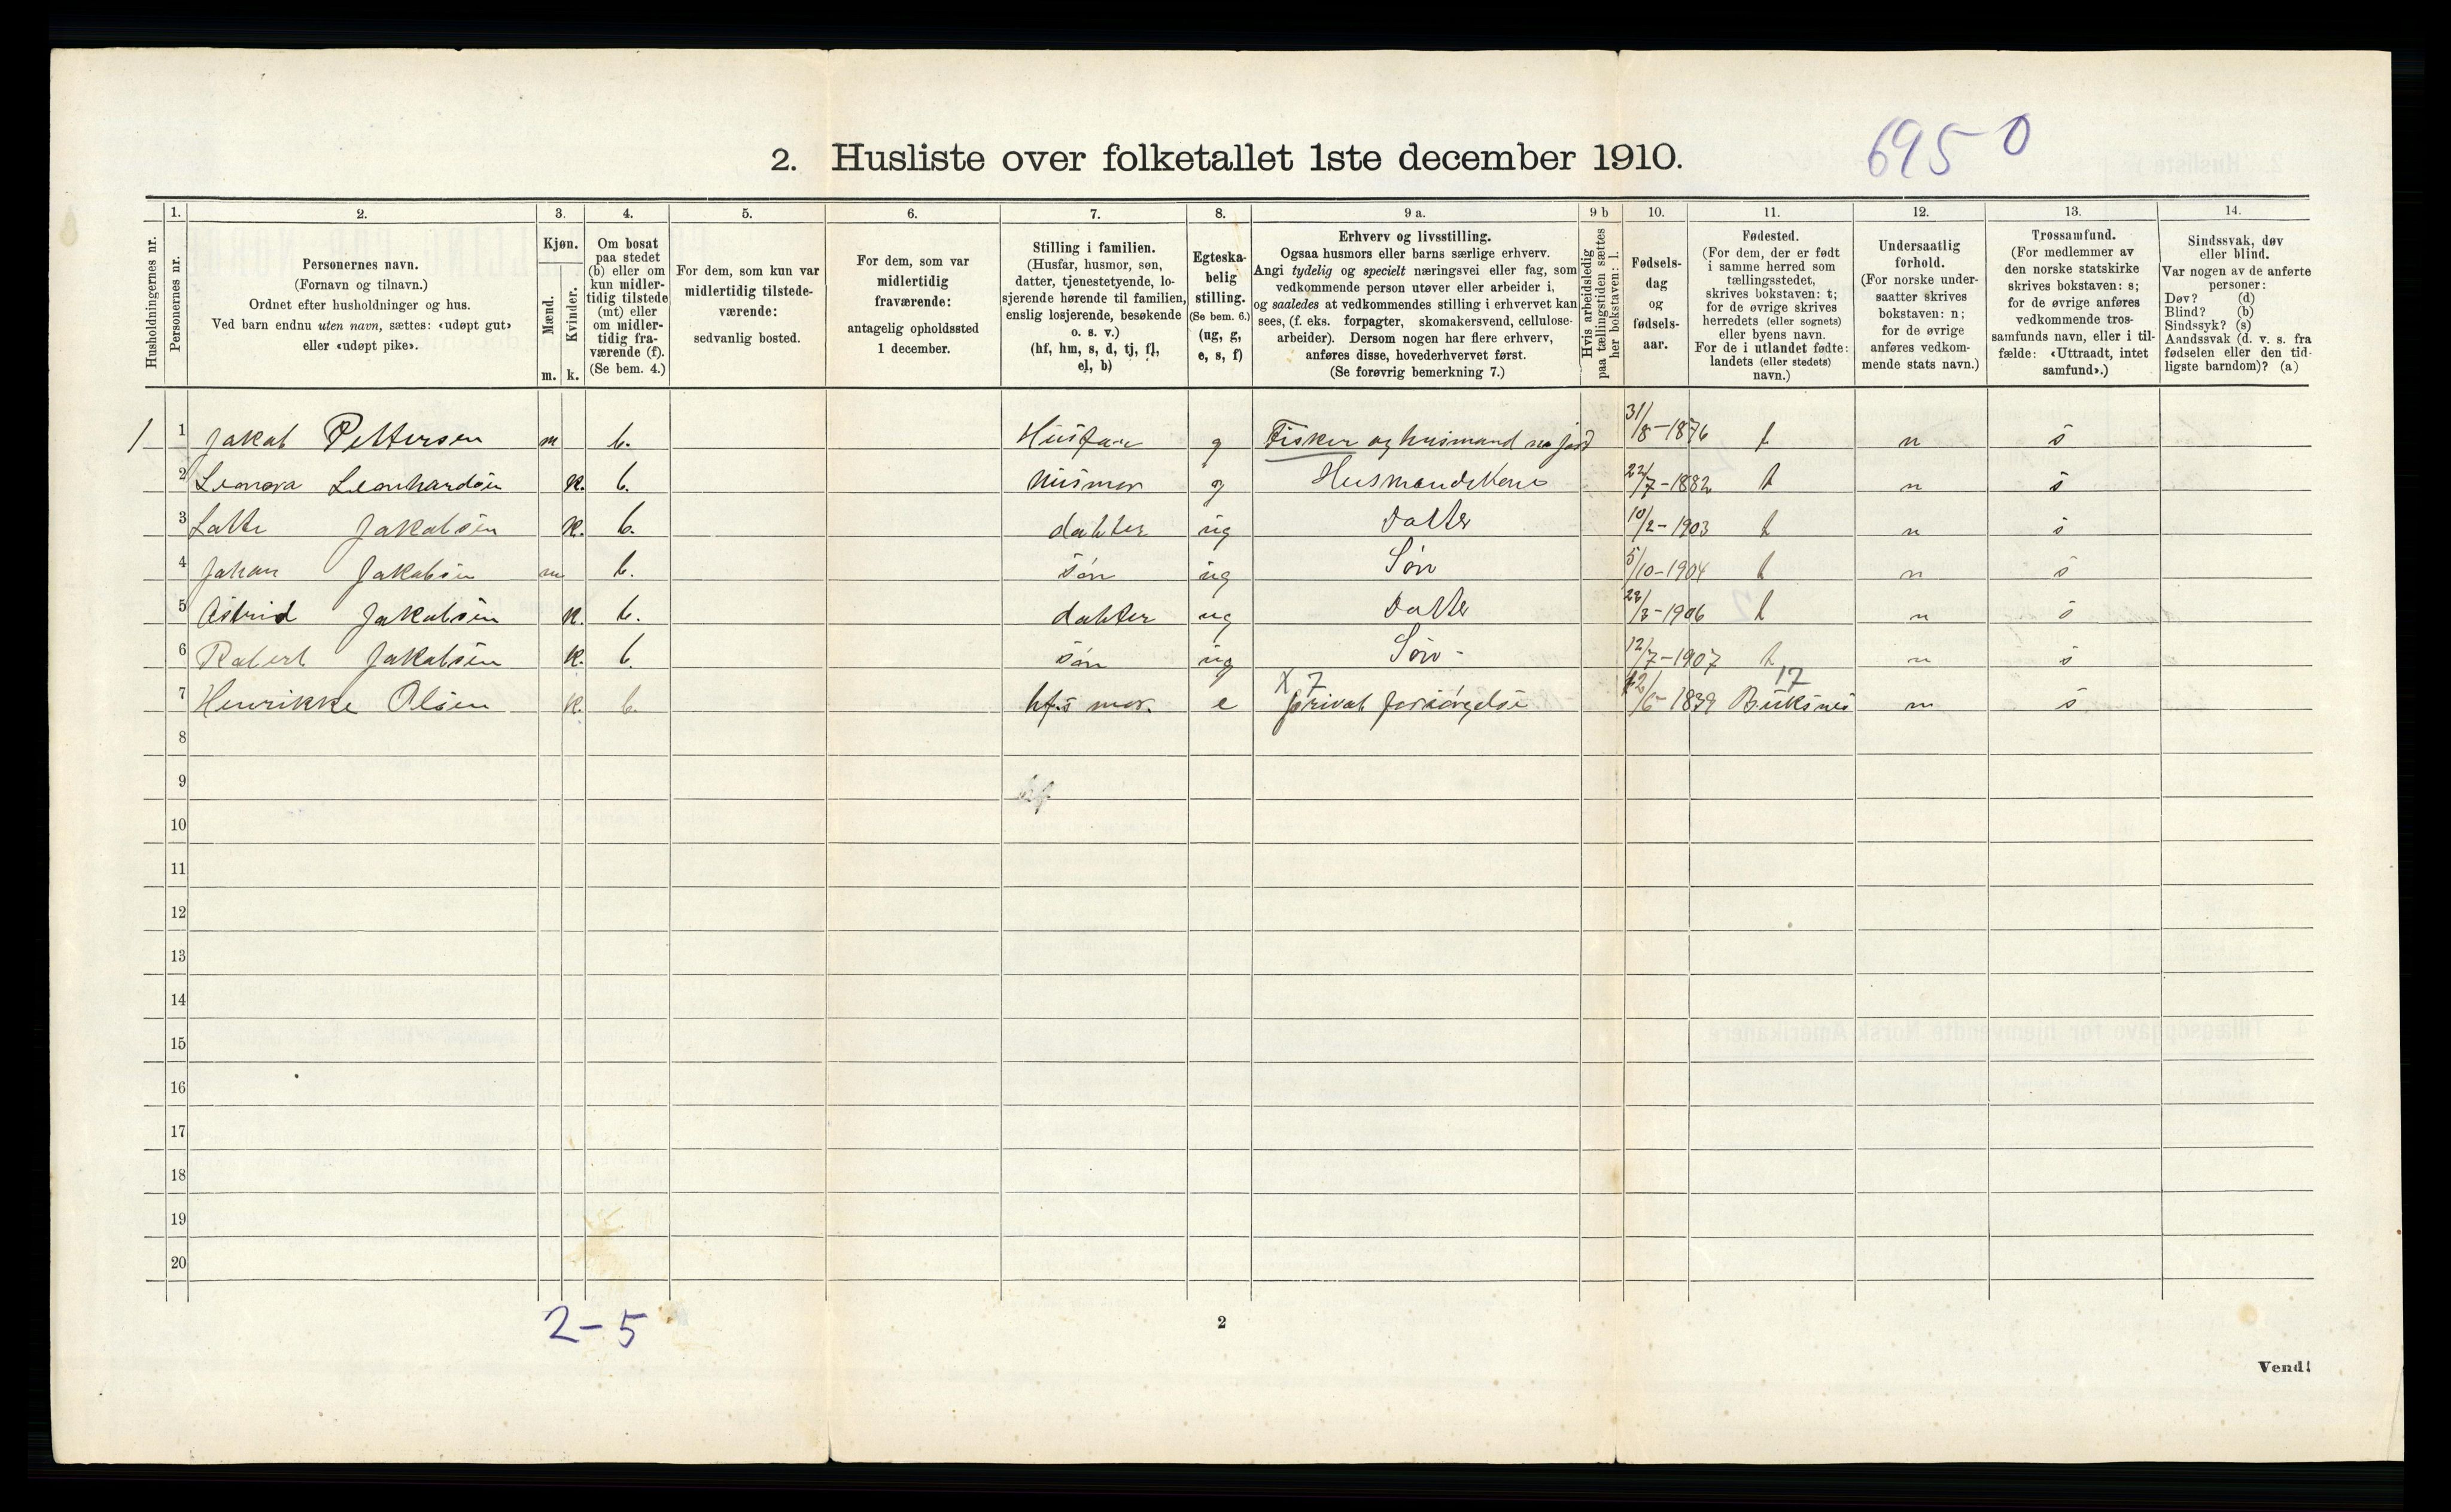 6950
2. Husliste over folketallet 1ste december 1910.
Husholdningernes nr.
1.
Personernes nr.
2.
Personernes navn.
(Fornavn og tilnavn.)
Ordnet efter husholdninger og hus.
Ved barn endnu uten navn, sættes: «udøpt gut»
eller «udøpt pike».
3.
Kjøn.
Mænd.
Kvinder.
m. k.
4.
Om bosat
paa stedet
(b) eller om
kun midler-
tidig tilstede
(mt) eller
om midler-
tidig fra-
værende (f).
(Se bem. 4.)
5.
For dem, som kun var
midlertidig tilstede-
værende:
sedvanlig bosted.
6.
For dem, som var
midlertidig
fraværende:
antagelig opholdssted
1 december.
7.
Stilling i familien.
(Husfar, husmor, søn,
datter, tjenestetyende, lo-
sjerende hørende til familien,
enslig losjerende, besøkende
o. s. v.)
(hf, hm, s, d, tj, fl,
el, b)
8.
Egteska-
belig
stilling.
(Se bem. 6.)
(ug, g,
e, s, f)
9 a.
Erhverv og livsstilling.
Ogsaa husmors eller barns særlige erhverv.
Angi tydelig og specielt næringsvei eller fag, som
vedkommende person utøver eller arbeider i,
og saaledes at vedkommendes stilling i erhvervet kan
sees, (f. eks. forpagter, skomakersvend, cellulose-
arbeider). Dersom nogen har flere erhverv,
anføres disse, hovederhvervet først.
(Se forøvrig bemerkning 7.)
9 b
Hvis arbeidsledig
paa tællingstiden sættes
her bokstaven: l.
10.
Fødsels-
dag
og
fødsels-
aar.
11.
Fødested.
(For dem, der er født
i samme herred som
tællingsstedet,
skrives bokstaven: t;
for de øvrige skrives
herredets (eller sognets)
eller byens navn.
For de i utlandet fødte:
landets (eller stedets)
navn.)
12.
Undersaatlig
forhold.
(For norske under-
saatter skrives
bokstaven: n;
for de øvrige
anføres vedkom-
mende stats navn.)
13.
Trossamfund.
(For medlemmer av
den norske statskirke
skrives bokstaven: s;
for de øvrige anføres
vedkommende tros-
samfunds navn, eller i til-
fælde: «Uttraadt, intet
samfund».)
14.
Sindssvak, døv
eller blind.
Var nogen av de anførte
personer:
Døv? (d)
Blind? (b)
Sindssyk? (s)
Aandssvak (d. v. s. fra
fødselen eller den tid-
ligste barndom)? (a)
1 1 Jakob Pettersen m b. Husfar g Fisker og husmand m jord 31/8-1876 t n s
2 Leonora Leonhardsen k. b. Husmor g Husmandskone 22/7-1882 t n s
3 Lotte Jakobsen k. b. dahter ug Datter 10/2-1903 t n s
4 Johan Jakobsen m b. søn ug Søn 5/10-1904 t n s
5 Astrid Jakobsen k. b. dahter ug Datter 23/3-1906 t n s
6 Robert Jakobsen k. b. søn ug Søn - 12/7-1907 t n s
X 7 17
7 Henrikke Olsen k. b. hf.s mor. e privat forsørgelse 12/6-1839 Buksnes n s
8
9 hf
10
11
12
13
14
15
16
17
18
19
20
2-5
2
Vend!